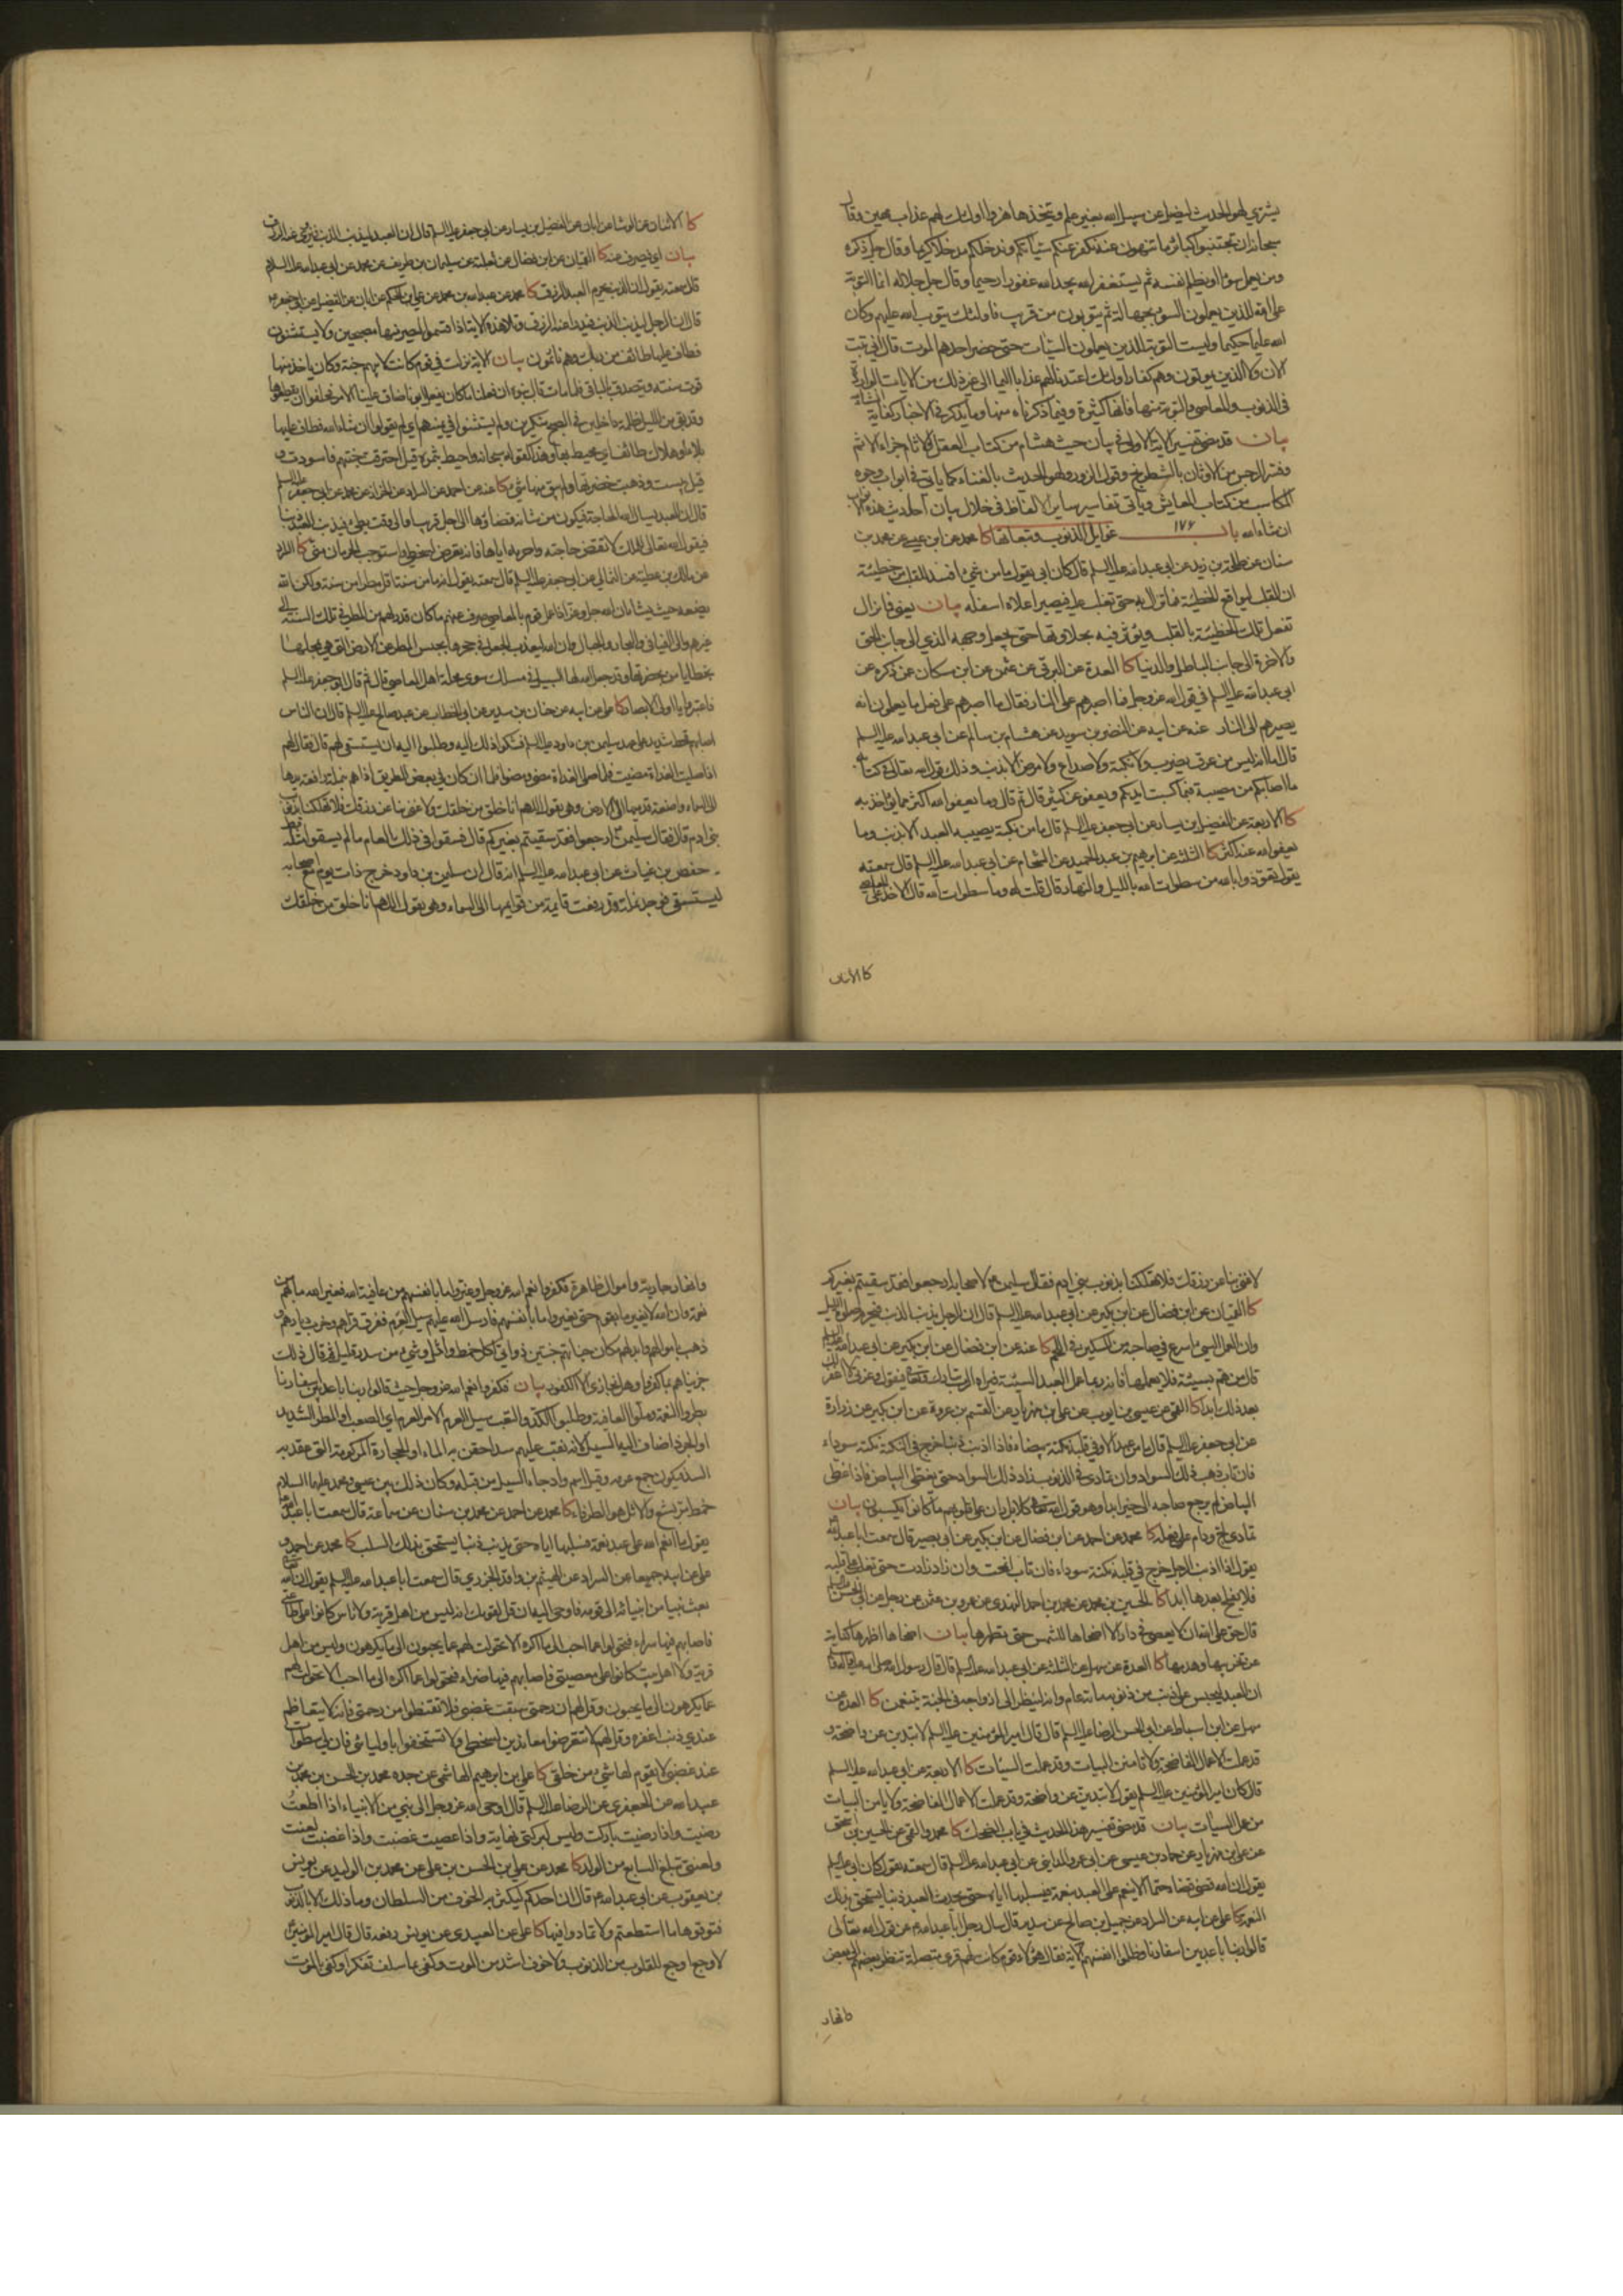 يشتري لهو الحديث ليضل عن سبيل الله بغير علم ويتخذها هزوا اولئك لهم عذاب مهين وقال
سبحانه ان تجتنبوا كبائر ما تنهون عنه نكفر عنكم سيئاتكم وندخلكم مدخلا كريما وقال جل ذكره
ومن يعمل سوءا او يظلم نفسه ثم يستغفر الله يجد الله غفورا رحيما وقال جل جلاله انما التوبة
على الله للذين يعملون السوء بجهالة ثم يتوبون من قريب فاولئك يتوب الله عليهم وكان
الله عليما حكيما وليست التوبة للذين يعملون السيئات حتى حضر احدهم الموت قال اني تبت
الان ولا الذين يموتون وهم كفار اولئك اعتدنا لهم عذابا اليما الى غير ذلك من الايات الواردة
في الذنوب والمعاصي والتوبة منها فانها كثيرة وفيما ذكرناه منها وما يذكر في الاخبار كفاية
بيان قد مضى تفسير الاية الاولى في بيان حديث هشام من كتاب العقل والاثام جزاء الاثم
وفسر الرجس من الاوثان بالشطرنج وقول الزور ولهو الحديث بالغناء كما ياتي في ابواب وجوه
المكاسب من كتاب المعايش وياتي تفاسير ساير الالفاظ في خلال بيان احاديث هذه
ان شاء الله باب ١٧٦ غوايل الذنوب وتبعاتها كا محمد عن ابن عيسى عن محمد بن
سنان عن طلحة بن زيد عن ابي عبد الله عليه السلم قال كان ابي يقول ما من شئ افسد للقلب من خطيئة
ان القلب ليواقع الخطيئة فما تزال به حتى تغلب عليه فيصير اعلاه اسفله بيان يعني فما تزال
تفعل تلك الخطيئة بالقلب وتؤثر فيه بحلاوتها حتى يجعل وجهه الذي الى جانب الحق
والاخرة الى جانب الباطل والدنيا كا العدة عن البرقي عن عثمن عن ابن مسكان عن ذكره عن
ابي عبد الله عليه السلم في قول الله عز وجل فما اصبرهم على النار فقال ما اصبرهم على فعل ما يعلمون انه
يصيرهم الى النار عنه عن ابيه عن النضر بن سويد عن هشام بن سالم عن ابي عبد الله عليه السلم
قال اما انه ليس من عرق يضرب ولا نكبة ولا صداع ولا مرض الا بذنب وذلك قول الله تعالى في كتابه
ما اصابكم من مصيبة فبما كسبت ايديكم ويعفو عن كثير قال ثم قال وما يعفو الله اكثر مما يؤاخذ به
كا الاربعة عن الفضيل بن يسار عن ابي جعفر عليه السلم قال ما من نكبة يصيب العبد الا بذنب وما
يعفو الله عنه اكثر كا الثلثة عن ابرهيم بن عبد الحميد عن الشحام عن ابي عبد الله عليه السلم قال سمعته
يقول تعوذوا بالله من سطوات الله بالليل والنهار قال قلت له وما سطوات الله قال الاخذ على المعاصي
كا الاثنان
كا الاثنان عن الوشا عن ابان عن الفضيل بن يسار عن ابي جعفر عليه السلم قال ان العبد ليذنب الذنب فيزوى عنه الرزق
بيان اي يصرف عنه كا القميان عن ابن فضال عن ثعلبة عن سليمان بن طريف عن محمد عن ابي عبد الله عليه السلام
قال سمعته يقول ان الذنب يحرم العبد الرزق كا محمد عن عبد الله بن محمد عن علي بن الحكم عن ابان عن الفضيل عن ابي جعفر
قال ان الرجل ليذنب الذنب فيدرأ عنه الرزق وتلا هذه الاية اذ اقسموا ليصرمنها مصبحين ولا يستثنون
فطاف عليها طائف من ربك وهم نائمون بيان الاية نزلت في قوم كانت لابيهم جنة وكان ياخذ منها
قوت سنته ويتصدق بالباقي فلما مات قال بنوه ان فعلنا ما كان يفعل ابونا ضاق علينا الامر فحلفوا ان يقطعوها
وقد بقي من الليل ظلمة داخلين في الصبح منكرين ولم يستثنوا في يمينهم اي لم يقولوا ان شاء الله فطاف عليها
بلاء او هلاك طائف اي محيط بها وهذا كقوله سبحانه واحيط بثمره قيل احترقت جنتهم فاسودت و
قيل يبست وذهبت خضرتها ولم يبق منها شئ كا عنه عن احمد عن السراد عن الخراز عن محمد عن ابي جعفر عليه السلم
قال ان العبد يسال الله الحاجة فيكون من شانه قضاؤها الى اجل قريب او الى وقت بطئ فيذنب العبد ذنبا
فيقول الله تعالى للملك لا تقض حاجته واحرمه اياها فانه تعرض لسخطي واستوجب الحرمان مني كا السراد
عن مالك بن عطية عن الثمالي عن ابي جعفر عليه السلم قال سمعته يقول انه ما من سنة اقل مطرا من سنة ولكن الله
يضعه حيث يشاء ان الله جل وعز اذا عمل قوم بالمعاصي صرف عنهم ما كان قدر لهم من المطر في تلك السنة الى
غيرهم والى الفيافي والبحار والجبال وان الله ليعذب الجعل في جحرها بحبس المطر عن الارض التي هي بمحلها
بخطايا من بحضرتها وقد جعل الله لها السبيل في مسلك سوى محلة اهل المعاصي قال ثم قال ابو جعفر عليه السلم
فاعتبروا يا اولي الابصار كا علي عن ابيه عن حنان بن سدير عن ابي الخطاب عن عبد صالح عليه السلم قال ان الناس
اصابهم قحط شديد على عهد سليمن بن داود عليه السلم فشكوا ذلك اليه وطلبوا اليه ان يستسقي لهم قال فقال لهم
اذا صليت الغداة مضيت فلما صلى الغداة مضى ومضوا فلما ان كان في بعض الطريق اذا هم بنملة رافعة يدها
الى السماء واضعة قدميها الى الارض وهي تقول اللهم انا خلق من خلقك ولا غنى بنا عن رزقك فلا تهلكنا بذنوب
بني ادم قال فقال سليمن ارجعوا فقد سقيتم بغيركم قال فسقوا في ذلك العام ما لم يسقوا مثله
حفص بن غياث عن ابي عبد الله عليه السلم انه قال ان سليمن بن داود خرج ذات يوم مع اصحابه
ليستسقي فوجد نملة قد رفعت قايمة من قوايمها الى السماء وهي تقول اللهم انا خلق من خلقك
لا غنى بنا عن رزقك فلا تهلكنا بذنوب بني ادم فقال سليمن ع لاصحابه ارجعوا فقد سقيتم بغيركم
كا القميان عن ابن فضال عن ابن بكير عن ابي عبد الله عليه السلم قال ان الرجل يذنب الذنب فيحرم صلوة الليل
وان العمل السيئ اسرع في صاحبه من السكين في اللحم كا عنه عن ابن فضال عن ابن بكير عن ابي عبد الله عليه السلم
قال من هم بسيئة فلا يعملها فانه ربما عمل العبد السيئة فيراه الرب تبارك وتعالى فيقول وعزتي لا اغفر لك
بعد ذلك ابدا كا القمي عن عيسى بن ايوب عن علي بن مهزيار عن القسم بن عروة عن ابن بكير عن زرارة
عن ابي جعفر عليه السلم قال ما من عبد الا وفي قلبه نكتة بيضاء فاذا اذنب ذنبا خرج في النكتة نكتة سوداء
فان تاب ذهب ذلك السواد وان تمادى في الذنوب زاد ذلك السواد حتى يغطي البياض فاذا غطى
البياض لم يرجع صاحبه الى خير ابدا وهو قول الله تعالى كلا بل ران على قلوبهم ما كانوا يكسبون بيان
تمادى لج ودام على فعله كا محمد عن احمد عن ابن فضال عن ابن بكير عن ابي بصير قال سمعت ابا عبد الله
يقول اذا اذنب الرجل خرج في قلبه نكتة سوداء فان تاب انمحت وان زاد زادت حتى تغلب على قلبه
فلا يفلح بعدها ابدا كا الحسين بن محمد عن محمد بن احمد النهدي عن عمرو بن عثمن عن رجل عن ابي الحسن
قال حق على الله ان لا يعصى في دار الا اضحاها للشمس حتى تطهرها بيان اضحاها اظهرها كناية
عن تخريبها وهدمها كا العدة عن سهل عن الثلثة عن ابي عبد الله عليه السلم قال قال رسول الله صلى الله عليه واله
ان العبد ليحبس على ذنب من ذنوبه مائة عام وانه لينظر الى ازواجه في الجنة يتنعمن كا العدة عن
سهل عن ابن اسباط عن ابي الحسن الرضا عليه السلم قال قال امير المؤمنين عليه السلم لا تبدين عن واضحة و
قد عملت الاعمال الفاضحة ولا تامنن البيات وقد عملت السيئات كا الاربعة عن ابي عبد الله عليه السلم
قال كان امير المؤمنين عليه السلم يقول لا تبدين عن واضحة وقد عملت الاعمال الفاضحة ولا يامن البيات
من عمل السيئات بيان قد مضى تفسير هذا الحديث في باب الضحك كا محمد والقمي عن الحسين بن اسحق
عن علي بن مهزيار عن حماد بن عيسى عن ابي عمرو المدايني عن ابي عبد الله عليه السلم قال سمعته يقول كان ابي عليه السلم
يقول ان الله قضى قضاء حتما الا ينعم على العبد بنعمة فيسلبها اياه حتى يحدث العبد ذنبا يستحق بذلك
النقمة كا علي عن ابيه عن السراد عن جميل بن صالح عن سدير قال سال رجل ابا عبد الله ع عن قول الله تعالى
قالوا ربنا باعد بين اسفارنا وظلموا انفسهم الاية فقال هؤلاء قوم كانت لهم قرى متصلة تنظر بعضهم الى بعض
وانهار
وانهار جارية واموال ظاهرة فكفروا نعم الله عز وجل وغيروا ما بانفسهم من عافية الله فغير الله ما بهم من
نعمة وان الله لا يغير ما بقوم حتى يغيروا ما بانفسهم فارسل الله عليهم سيل العرم ففرق قراهم وخرب ديارهم و
ذهب باموالهم وابدلهم مكان جناتهم جنتين ذواتي اكل خمط واثل وشئ من سدر قليل ثم قال ذلك
جزيناهم بما كفروا وهل نجازي الا الكفور بيان فكفروا نعم الله عز وجل حيث قالوا ربنا باعد بين اسفارنا
بطروا النعمة وملوا العافية وطلبوا الكد والتعب سيل العرم الامر العرم اي الصعب او المطر الشديد
او الجرذ اضاف اليه السيل لانه نقب عليهم سدا حقن به الماء او الحجارة المركومة التي عقد به
السد فيكون جمع عرمة وقيل اسم واد جاء السيل من قبله وكان ذلك بين عيسى ومحمد عليهما السلام
خمط مر بشع والاثل هو الطرفاء كا محمد عن احمد عن محمد بن سنان عن سماعة قال سمعت ابا عبد الله
يقول ما انعم الله على عبد نعمة فسلبها اياه حتى يذنب ذنبا يستحق بذلك السلب كا محمد عن احمد و
علي عن ابيه جميعا عن السراد عن الهيثم بن واقد الجزري قال سمعت ابا عبد الله عليه السلم يقول ان الله
بعث نبيا من انبيائه الى قومه فاوحى اليه ان قل لقومك انه ليس من اهل قرية ولا ناس كانوا على طاعتي
فاصابهم فيها سراء فتحولوا عما احب الى ما اكره الا تحولت لهم عما يحبون الى ما يكرهون وليس من اهل
قرية ولا اهل بيت كانوا على معصيتي فاصابهم فيها ضراء فتحولوا عما اكره الى ما احب الا تحولت لهم
عما يكرهون الى ما يحبون وقل لهم ان رحمتي سبقت غضبي فلا تقنطوا من رحمتي فانه لا يتعاظم
عندي ذنب اغفره وقل لهم لا يتعرضوا معاندين لسخطي ولا تستخفوا باوليائي فان لي سطوات
عند غضبي لا يقوم لها شئ من خلقي كا علي بن ابرهيم الهاشمي عن جده محمد بن الحسن بن محمد بن
عبيد الله عن الجعفري عن الرضا عليه السلم قال اوحى الله عز وجل الى نبي من الانبياء اذا اطعت
رضيت واذا رضيت باركت وليس لبركتي نهاية واذا عصيت غضبت واذا غضبت لعنت
ولعنتي تبلغ السابع من الولد كا محمد عن علي بن الحسن بن علي عن محمد بن الوليد عن يونس
بن يعقوب عن ابي عبد الله ع قال ان احدكم ليكثر به الخوف من السلطان وما ذلك الا بالذنوب
فتوقوها ما استطعتم ولا تمادوا فيها كا علي عن العبيدي عن يونس رفعه قال قال امير المؤمنين
لا وجع اوجع للقلوب من الذنوب ولا خوف اشد من الموت وكفى بما سلف تفكرا وكفى بالموت